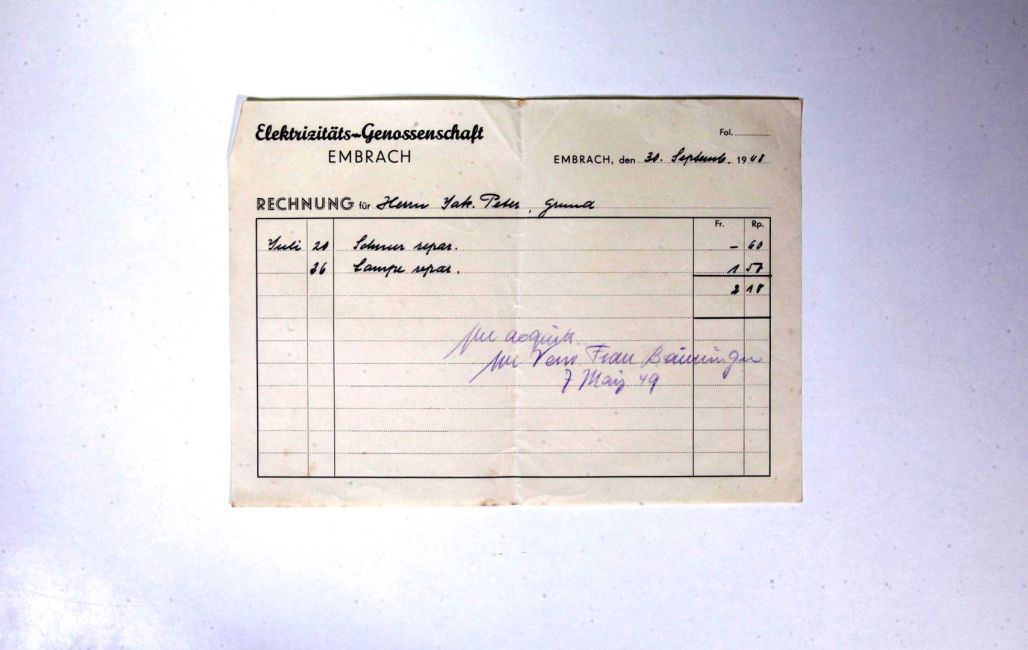 Elektrizitäts-Genossenschaft
EMBRACH
Fol.
EMBRACH, den 30. Septemb. 1948
RECHNUNG für Herrn Jak. Peter, Grund
Fr. Rp.
Juli 20 Schnur repar. – 60
26 Lampe repar. 1 50
2 10
per acquit
Frau
7 März 49